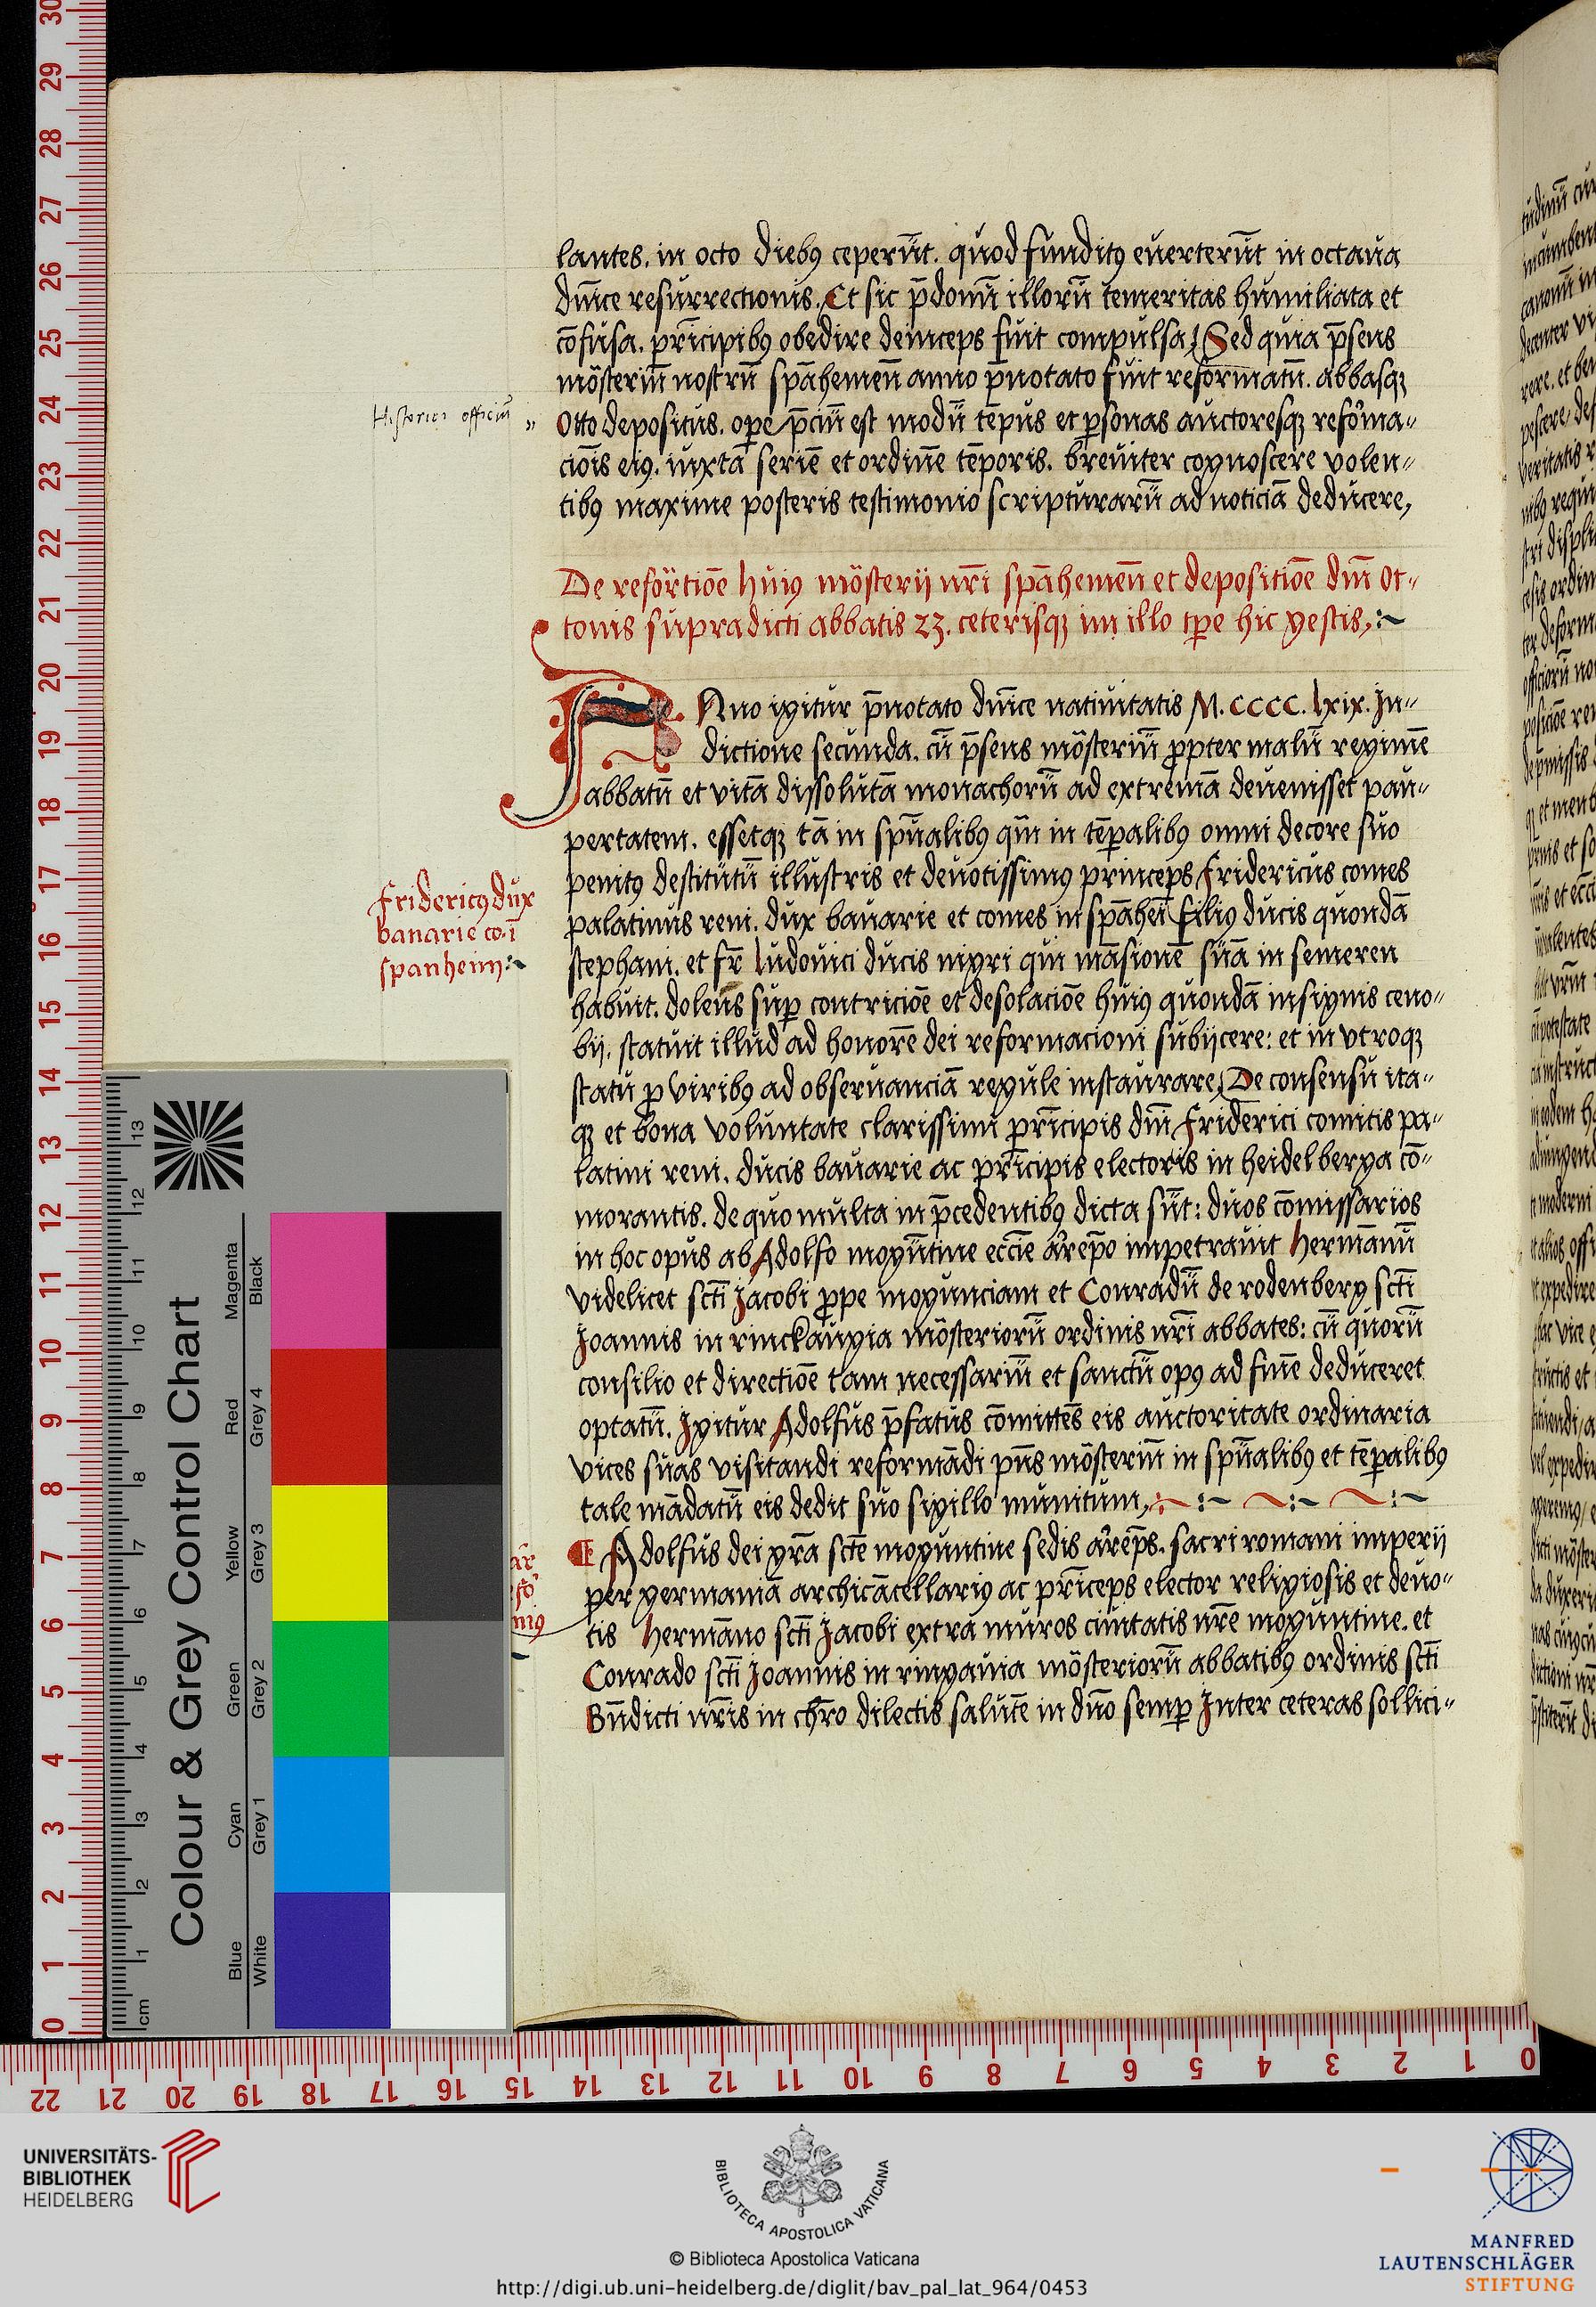 lantes. in octo diebꝯ ceperūt. quod funditꝯ euerterūt in octaua
dnīce resurrectionis. Et sic p̄donū illorū temeritas humiliata et
cōfusa. pr̄icipibꝯ obedire deinceps fuit compulsa, Sed quia p̄sens
mōsteriū nostrū spāhemen̄ anno p̄notato fuit reformatū. abbasqꝫ
Otto depositus. ope p̄ciū est modū tēpus et ꝑsonas auctoresqꝫ refoꝛma〃
ciōis eiꝯ. iuxta seriē et ordinē tēporis. breuiter cognoscere volen〃
tibꝯ maxime posteris testimonio scripturarū ad noticiā deducere,
Historici officiū 〃
De refoꝛtiōe huiꝯ mōsterij nr̄i spāhemen̄ et depositiōe dnī Ot〃
tonis supradicti abbatis 23. ceterisqꝫ in illo tp̄e hic gestis,:~
ANno igitur p̄notato dnīce natiuitatis M. CCCC. lxix. In〃
dictione secunda. cū p̄sens mōsteriū ꝓpter malū regimē
abbatū et vitā dissolutā monachorū ad extremā deuenisset pau〃
pertatem. essetqꝫ tā in spūalibꝯ qm̄ in tēꝑalibꝯ omni decore suo
penitꝯ destitutū illustris et deuotissimꝯ princeps Fridericus comes
palatinus reni. dux bauarie et comes in spāhei filiꝯ ducis quondā
stephani. et fr̄ ludouici ducis nigri qui māsionē suā in semeren
habuit. dolens suꝑ contriciōe et desolaciōe huiꝯ quondā insignis ceno〃
bij. statuit illud ad honorē dei reformacioni subijcere: et in vtroqꝫ
statu ꝓ viribꝯ ad obseruanciā regule instaurare, De consensu ita〃
qꝫ et bona voluntate clarissimi pr̄icipis dnī Friderici comitis pa〃
latini reni. ducis bauarie ac pr̄icipis electoris in heidelberga cō〃
morantis. de quo multa in p̄cedentibꝯ dicta sūt: duos cōmissarios
in hoc opus ab Adolfo moguntine eccīe arep̄o impetrauit Hermānū
videlicet scti Jacobi ꝓpe mogunciam et Conradū de rodenberg scti
Joannis in rinckaugia mōsteriorū ordinis nr̄i abbates: cū quorū
consilio et directiōe tam necessariū et sanctū opꝯ ad finē deduceret
optatū. Igitur Adolfus p̄fatus cōmittēs eis auctoritate ordinaria
vices suas visitandi reformādi pn̄s mōsteriū in spūalibꝯ et tēꝑalibꝯ
tale mādatū eis dedit suo sigillo munitum,:~ :~ ~:~ ~:~
Fridericꝯ dux
bauarie co. ī
spanheim:~
¶ Adolfus dei gr̄a scte moguntine sedis arep̄s. sacri romani imperij
per germaniā archicācellariꝯ ac pr̄iceps elector religiosis et deuo〃
tis Hermāno scti Jacobi extra muros ciuitatis nr̄e moguntine. et
Conrado scti Joannis in ringauia mōsteriorū abbatibꝯ ordinis scti
Bn̄dicti nr̄is in chr̄o dilectis salutē in dn̄o semꝑ Inter ceteras sollici〃
Colour & Grey Control Chart
Magenta Black
Red Grey 4
Yellow Grey 3
Green Grey 2
Cyan Grey 1
Blue White
cm 1 2 3 4 5 6 7 8 9 10 11 12 13
30 29 28 27 26 25 24 23 22 21 20 19 18 17 16 15 14 13 12 11 10 9 8 7 6 5 4 3 2 1 0
22 21 20 19 18 17 16 15 14 13 12 11 10 9 8 7 6 5 4 3 2 1 0
UNIVERSITÄTS-
BIBLIOTHEK
HEIDELBERG
BIBLIOTECA APOSTOLICA VATICANA
© Biblioteca Apostolica Vaticana
http://digi.ub.uni-heidelberg.de/diglit/bav_pal_lat_964/0453
MANFRED
LAUTENSCHLÄGER
STIFTUNG